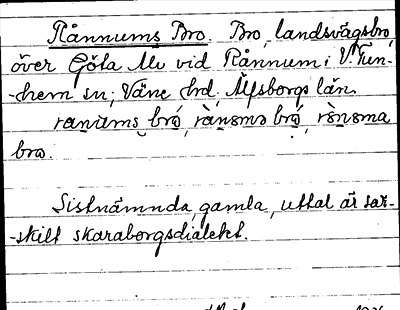 Rånnums Bro. Bro, landsvägsbro
över Göta Älv vid Rånnum i V. Tun-
-hem sn; Väne hd, Älfsborgs län.
ranums bro, rånsms bro, rönsma
bro.
Sistnämnda, gamla, uttal är sär-
-skilt skaraborgsdialekt.